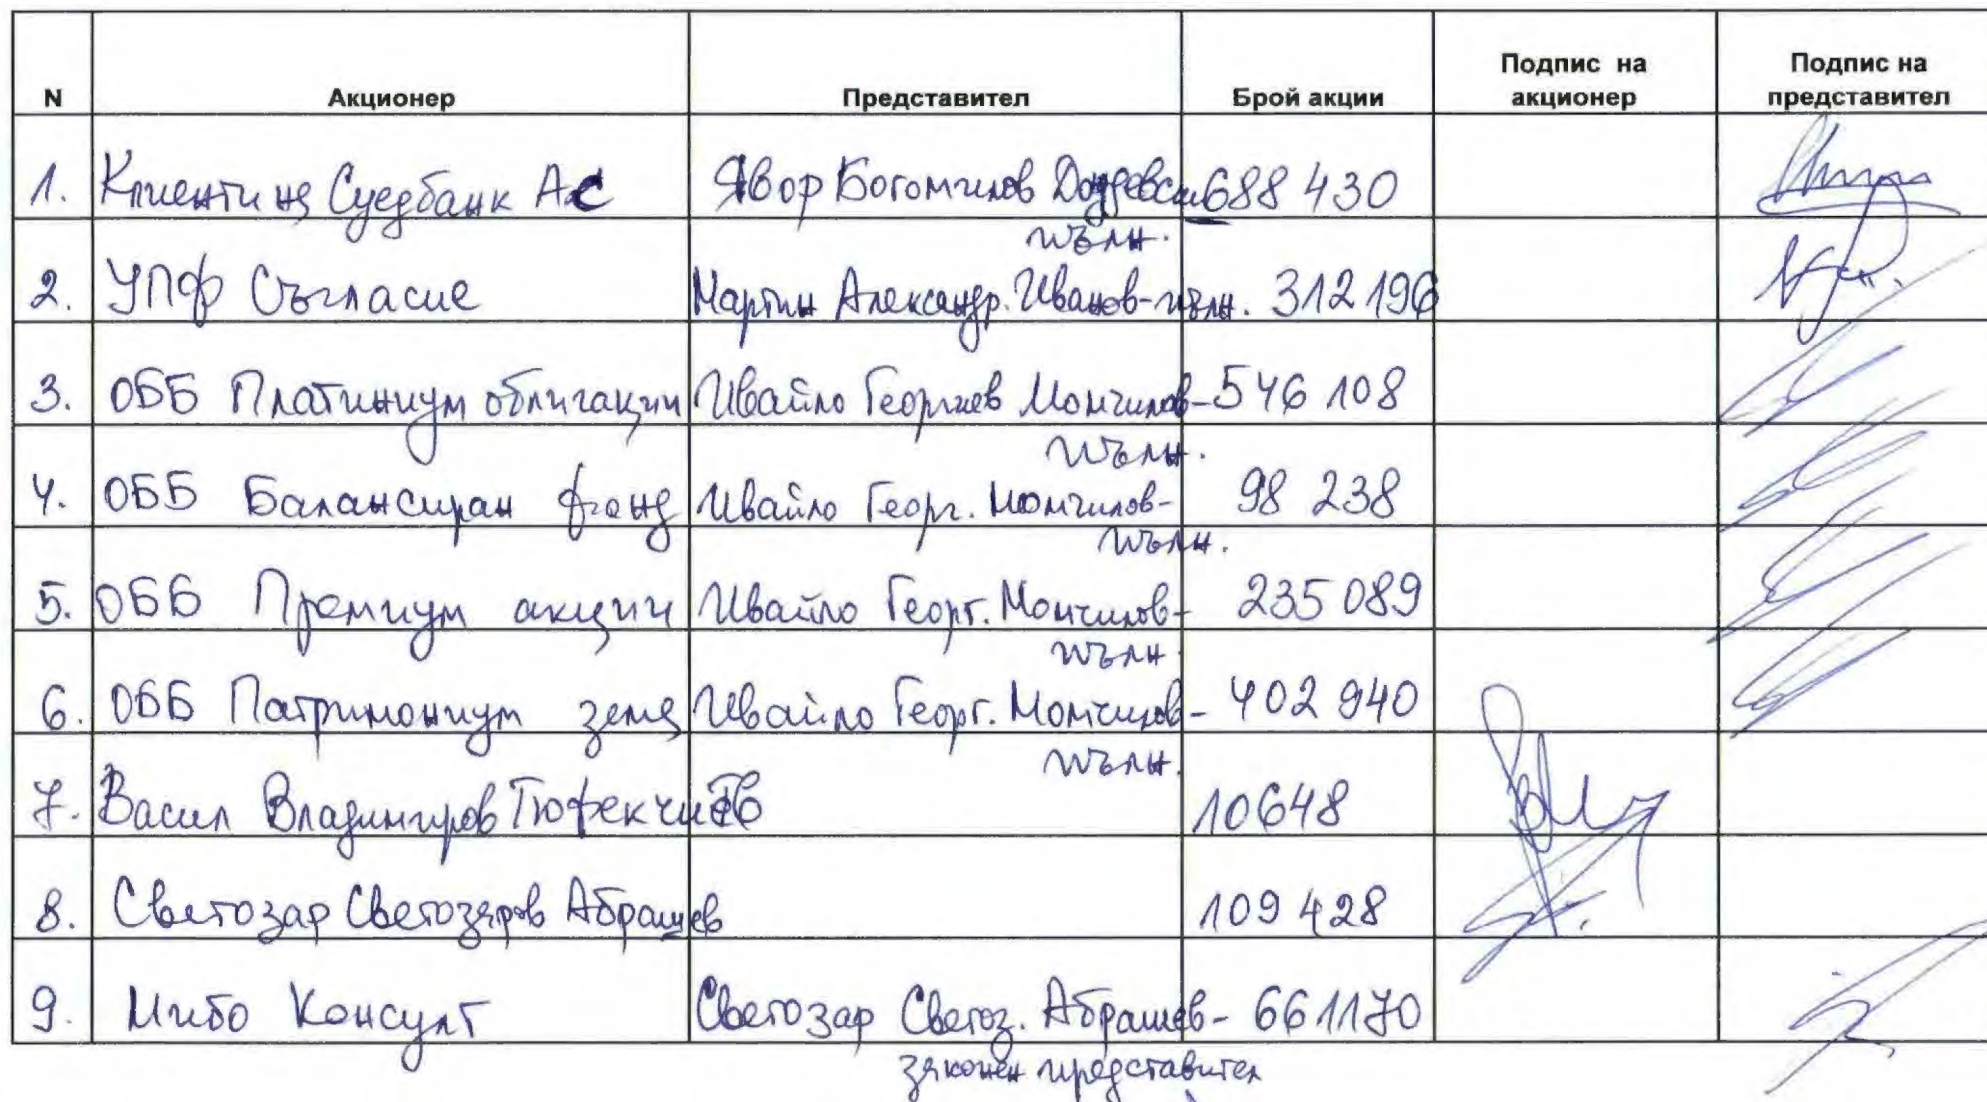 N Акционер Представител Брой акции Подпис на акционер Подпис на представител
1. Клиенти на Суедбанк АС Явор Богомилов 688 430
пълн.
2. УПФ Съгласие Мартин Александр. Иванов-пълн. 312 196
3. ОББ Платинум облигации Ивайло Георгиев Момчилов- 546 108
пълн.
4. ОББ Балансиран фонд Ивайло Георг. Момчилов- 98 238
пълн.
5. ОББ Премиум акции Ивайло Георг. Момчилов- 235 089
пълн.
6. ОББ Патримониум земя Ивайло Георг. Момчилов- 402 940
пълн.
7. Васил Владимиров Тюфекчиев 10648
8. Светозар Светозаров Абрашев 109 428
9. Консулт Светозар Светоз. Абрашев- 661170
законен представител